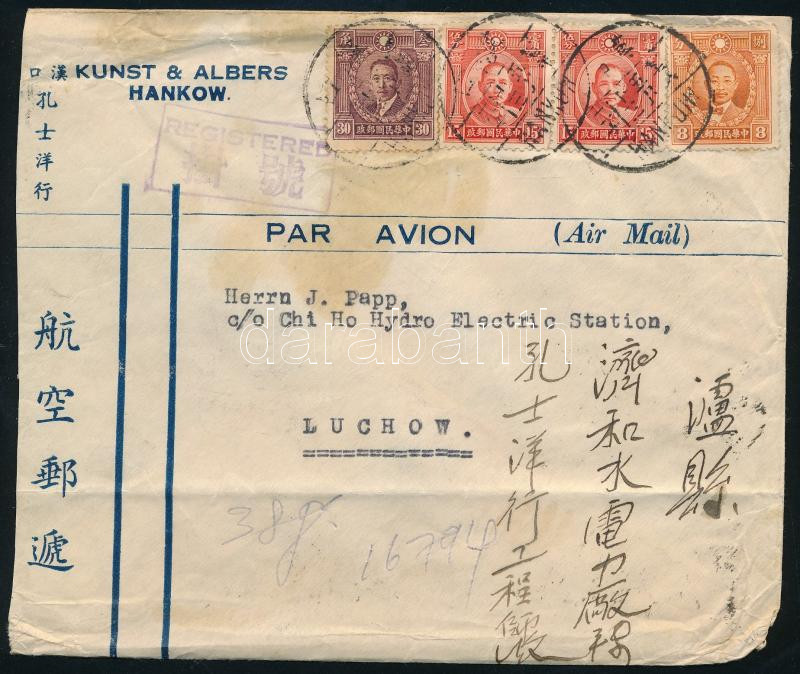 KUNST & ALBERS
HANKOW.
漢口
孔士洋行
REGISTERED
掛號
30 30
中華民國郵政
15
中華民國郵政
15
中華民國郵政
8 8
中華民國郵政
HANKOW
PAR AVION (Air Mail)
航空郵遞
Herrn J. Papp,
c/o Chi Ho Hydro Electric Station,
LUCHOW.
darabanth
瀘縣
濟和水電力廠
孔士洋行工程
16794